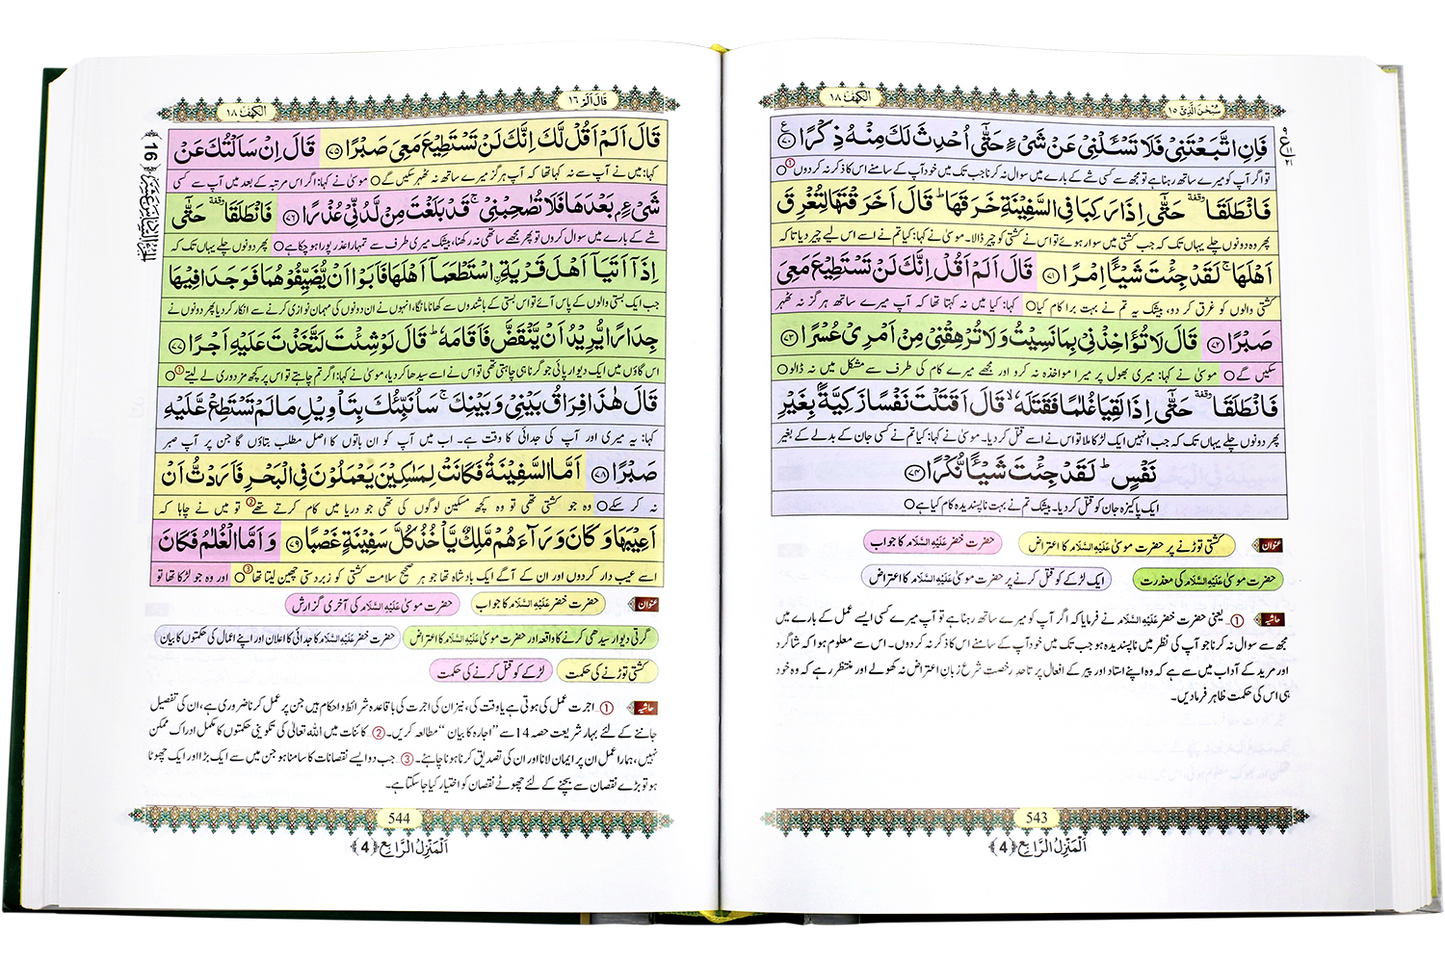 سُبْحٰنَ الَّذِیْۤ ١٥
الكهف ١٨
فَاِنِ اتَّبَعْتَنِیْ فَلَا تَسْـَٔلْنِیْ عَنْ شَیْءٍ حَتّٰۤى اُحْدِثَ لَكَ مِنْهُ ذِكْرًا ﴿٧٠﴾ ع
تو اگر آپ کو میرے ساتھ رہنا ہے تو مجھ سے کسی شے کے بارے میں سوال نہ کرنا جب تک میں خود آپ کے سامنے اس کا ذکر نہ کردوں ①
فَانْطَلَقَا ٝ حَتّٰۤى اِذَا رَكِبَا فِی السَّفِیْنَةِ خَرَقَهَا ؕ قَالَ اَخَرَقْتَهَا لِتُغْرِقَ
پھر وہ دونوں چلے یہاں تک کہ جب کشتی میں سوار ہوئے تو اس نے کشتی کو چیر ڈالا۔ موسیٰ نے کہا: کیا تم نے اسے اس لیے چیر دیا تاکہ
اَهْلَهَا ۚ لَقَدْ جِئْتَ شَیْــٴًـا اِمْرًا ﴿٧١﴾ قَالَ اَلَمْ اَقُلْ اِنَّكَ لَنْ تَسْتَطِیْعَ مَعِیَ
کشتی والوں کو غرق کر دو، بیشک یہ تم نے بہت برا کام کیا ○ کہا: کیا میں نہ کہتا تھا کہ آپ میرے ساتھ ہرگز نہ ٹھہر
صَبْرًا ﴿٧٢﴾ قَالَ لَا تُؤَاخِذْنِیْ بِمَا نَسِیْتُ وَ لَا تُرْهِقْنِیْ مِنْ اَمْرِیْ عُسْرًا ﴿٧٣﴾
سکیں گے ○ موسیٰ نے کہا: میری بھول پر میرا مواخذہ نہ کرو اور مجھے میرے کام کی طرف سے مشکل میں نہ ڈالو ○
فَانْطَلَقَا ٝ حَتّٰۤى اِذَا لَقِیَا غُلٰمًا فَقَتَلَهٗ ۙ قَالَ اَقَتَلْتَ نَفْسًا زَكِیَّةًۢ بِغَیْرِ
پھر دونوں چلے یہاں تک کہ جب انہیں ایک لڑکا ملا تو اس نے اسے قتل کر دیا۔ موسیٰ نے کہا: کیا تم نے کسی جان کے بدلے کے بغیر
نَفْسٍ ؕ لَقَدْ جِئْتَ شَیْــٴًـا نُّكْرًا ﴿٧٤﴾
ایک پاکیزہ جان کو قتل کر دیا۔ بیشک تم نے بہت ناپسندیدہ کام کیا ہے ○
عنوان کشتی توڑنے پر حضرت موسیٰ عَلَیْہِ السَّلَام کا اعتراض حضرت خضر عَلَیْہِ السَّلَام کا جواب
حضرت موسیٰ عَلَیْہِ السَّلَام کی معذرت ایک لڑکے کو قتل کرنے پر حضرت موسیٰ عَلَیْہِ السَّلَام کا اعتراض
حاشیہ ①۔ یعنی حضرت خضر عَلَیْہِ السَّلَام نے فرمایا کہ اگر آپ کو میرے ساتھ رہنا ہے تو آپ میرے کسی ایسے عمل کے بارے میں
مجھ سے سوال نہ کرنا جو آپ کی نظر میں ناپسندیدہ ہو جب تک میں خود آپ کے سامنے اس کا ذکر نہ کردوں۔ اس سے معلوم ہوا کہ شاگرد
اور مرید کے آداب میں سے ہے کہ وہ اپنے استاد اور پیر کے افعال پر تاحدِ رخصتِ شرع زبانِ اعتراض نہ کھولے اور منتظر رہے کہ وہ خود
ہی اس کی حکمت ظاہر فرمادیں۔
543
اَلْمَنْزِلُ الرَّابِع ﴿4﴾
قَالَ اَلَمْ ١٦
الكهف ١٨
قَالَ اَلَمْ اَقُلْ لَّكَ اِنَّكَ لَنْ تَسْتَطِیْعَ مَعِیَ صَبْرًا ﴿٧٥﴾ قَالَ اِنْ سَاَلْتُكَ عَنْ
کہا: میں نے آپ سے نہ کہا تھا کہ آپ ہرگز میرے ساتھ نہ ٹھہر سکیں گے ○ موسیٰ نے کہا: اگر اس مرتبہ کے بعد میں آپ سے کسی
شَیْءٍۭ بَعْدَهَا فَلَا تُصٰحِبْنِیْ ۚ قَدْ بَلَغْتَ مِنْ لَّدُنِّیْ عُذْرًا ﴿٧٦﴾ فَانْطَلَقَا ٝ حَتّٰۤى
شے کے بارے میں سوال کروں تو پھر مجھے ساتھی نہ رکھنا، بیشک میری طرف سے تمہارا عذر پورا ہو چکا ہے ○ پھر دونوں چلے یہاں تک کہ
اِذَاۤ اَتَیَاۤ اَهْلَ قَرْیَةِ ﹰاسْتَطْعَمَاۤ اَهْلَهَا فَاَبَوْا اَنْ یُّضَیِّفُوْهُمَا فَوَجَدَا فِیْهَا
جب ایک بستی والوں کے پاس آئے تو اس بستی کے باشندوں سے کھانا مانگا، انہوں نے ان دونوں کی مہمان نوازی کرنے سے انکار کر دیا پھر دونوں نے
جِدَارًا یُّرِیْدُ اَنْ یَّنْقَضَّ فَاَقَامَهٗ ؕ قَالَ لَوْ شِئْتَ لَتَّخَذْتَ عَلَیْهِ اَجْرًا ﴿٧٧﴾
اس گاؤں میں ایک دیوار پائی جو گرنا ہی چاہتی تھی تو اس نے اسے سیدھا کر دیا، موسیٰ نے کہا: اگر تم چاہتے تو اس پر کچھ مزدوری لے لیتے ① ○
قَالَ هٰذَا فِرَاقُ بَیْنِیْ وَ بَیْنِكَ ۚ سَاُنَبِّئُكَ بِتَاْوِیْلِ مَا لَمْ تَسْتَطِعْ عَّلَیْهِ
کہا: یہ میری اور آپ کی جدائی کا وقت ہے۔ اب میں آپ کو ان باتوں کا اصل مطلب بتاؤں گا جن پر آپ صبر
صَبْرًا ﴿٧٨﴾ اَمَّا السَّفِیْنَةُ فَكَانَتْ لِمَسٰكِیْنَ یَعْمَلُوْنَ فِی الْبَحْرِ فَاَرَدْتُّ اَنْ
نہ کر سکے ○ وہ جو کشتی تھی تو وہ کچھ مسکین لوگوں کی تھی جو دریا میں کام کرتے تھے ② تو میں نے چاہا کہ
اَعِیْبَهَا وَ كَانَ وَرَآءَهُمْ مَّلِكٌ یَّاْخُذُ كُلَّ سَفِیْنَةٍ غَصْبًا ﴿٧٩﴾ وَ اَمَّا الْغُلٰمُ فَكَانَ
اسے عیب دار کردوں اور ان کے آگے ایک بادشاہ تھا جو ہر صحیح سلامت کشتی کو زبردستی چھین لیتا تھا ③ ○ اور وہ جو لڑکا تھا تو
عنوان حضرت خضر عَلَیْہِ السَّلَام کا جواب حضرت موسیٰ عَلَیْہِ السَّلَام کی آخری گزارش
گرتی دیوار سیدھی کرنے کا واقعہ اور حضرت موسیٰ عَلَیْہِ السَّلَام کا اعتراض حضرت خضر عَلَیْہِ السَّلَام کا جدائی کا اعلان اور اپنے اعمال کی حکمتوں کا بیان
کشتی توڑنے کی حکمت لڑکے کو قتل کرنے کی حکمت
حاشیہ ①۔ اجرت عمل کی ہوتی ہے یا وقت کی، نیز ان کی اجرت کی باقاعدہ شرائط و احکام ہیں جن پر عمل کرنا ضروری ہے، ان کی تفصیل
جاننے کے لئے بہار شریعت حصہ 14 سے "اجارہ کا بیان" مطالعہ کریں۔ ②۔ کائنات میں اللہ تعالیٰ کی تکوینی حکمتوں کا مکمل ادراک ممکن
نہیں، ہمارا عمل ان پر ایمان لانا اور ان کی تصدیق کرنا ہونا چاہئے۔ ③۔ جب دو ایسے نقصانات کا سامنا ہو جن میں سے ایک بڑا اور ایک چھوٹا
ہو تو بڑے نقصان سے بچنے کے لئے چھوٹے نقصان کو اختیار کیا جا سکتا ہے۔
544
اَلْمَنْزِلُ الرَّابِع ﴿4﴾
اَلْجُزْءُ السَّادِسَ عَشَرَ ﴿16﴾